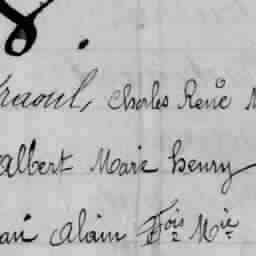 raoul, Charles René
albert Marie henry
Alain Fois Mie